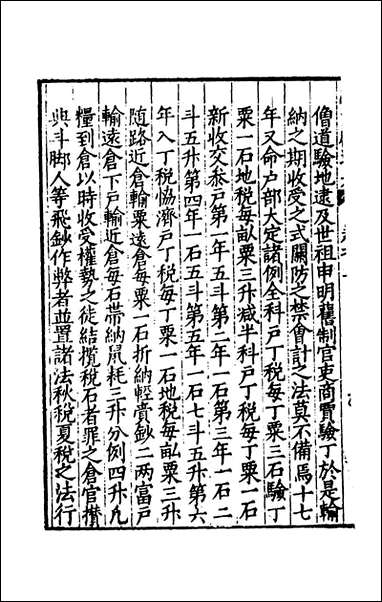 僧道驗地逮及世祖申明舊制官吏商賈驗丁於是輸
納之期收受之式關防之禁會計之法莫不備焉十七
年又命戶部大定諸例全科戶丁稅每丁粟三石驗丁
粟一石地稅每畝粟三升減半科戶丁稅每丁粟一石
新收交叅戶第一年五斗第二年一石第三年一石二
斗五升第四年一石五斗第五年一石七斗五升第六
年入丁稅恊濟戶丁稅每丁粟一石地稅每畝粟三升
随路近倉輸粟遠倉每粟一石折納輕賫鈔二两富戶
輸遠倉下戶輸近倉每石帶納鼠耗三升分例四升凡
糧到倉以時收受權勢之徒結攬稅石者罪之倉官攢
典斗脚人等飛鈔作弊者並置諸法秋稅夏稅之法行